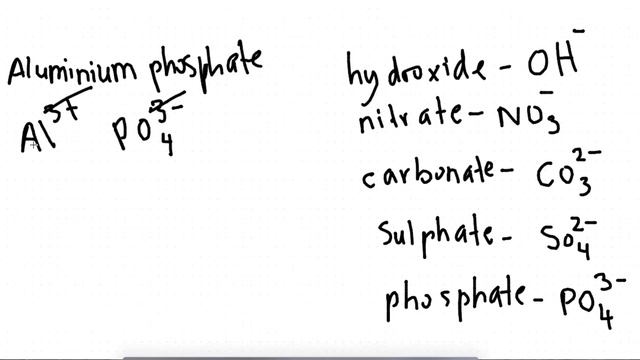 Aluminium phosphate
Al³⁺ PO₄³⁻
hydroxide - OH⁻
nitrate - NO₃⁻
carbonate - CO₃²⁻
Sulphate - SO₄²⁻
phosphate - PO₄³⁻